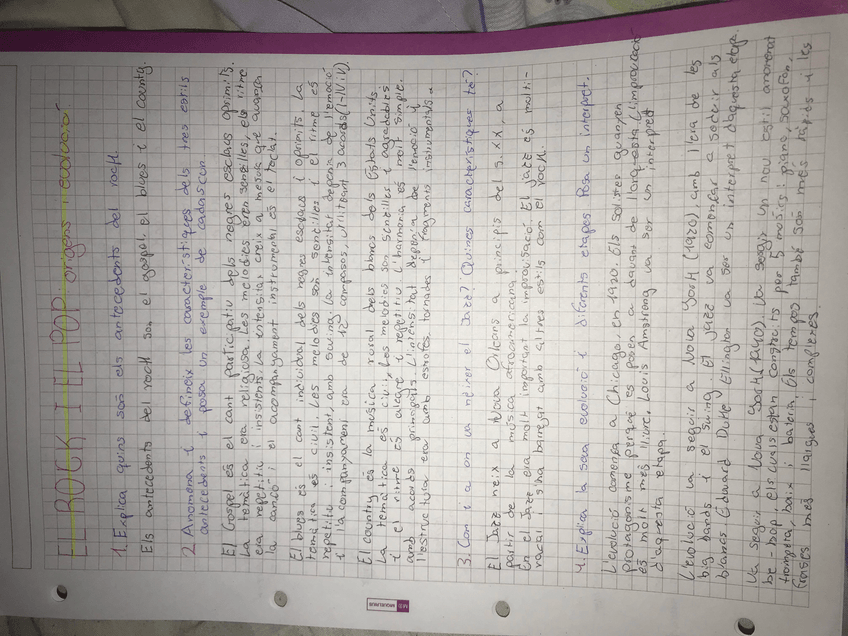 EL ROCK I EL POP: orígens i evolució
1. Explica quins són els antecedents del rock.
Els antecedents del rock són el gospel, el blues i el country.
2. Anomena i defineix les característiques dels tres estils
antecedents i posa un exemple de cadascún.
El Gospel és el cant participatiu dels negres esclaus oprimits.
La temàtica era religiosa. Les melodies eren senzilles, el ritme
era repetitiu i insistent. La intensitat creix a mesura que avança
la cançó i el acompanyament instrumental és el teclat.
El blues és el cant individual dels negres esclaus i oprimits. La
temàtica és civil. Les melodies són senzilles i el ritme és
repetitiu i insistent, amb swing. La intensitat depenia de l'emoció
i l'acompanyament era de 12 compasos, utilitzant 3 acords (I-IV i V).
El country és la música rural dels blancs dels Estats Units.
La temàtica és civil, les melodies són senzilles i agradables
i el ritme és alegre i repetitiu. L'harmonia és molt simple,
amb acords principals. L'intensitat depenia de l'emoció i
l'estructura era amb estrofes, tornades i fragments instrumentals.
3. Com i a on va néixer el Jazz? Quines característiques té?
El Jazz neix a Nova Orleans a principis del s. XX, a
partir de la música afroamericana.
En el Jazz era molt important la improvisació. El jazz és molt
vocal i s'ha barrejat amb altres estils com el rock.
4. Explica la seva evolució i diferents etapes. Posa un interpret.
L'evolució comença a Chicago, en 1920. Els solistes guanyen
protagonisme perquè es posen a davant de l'orquesta. L'improvisació
és molt més lliure. Louis Amstrong va ser un interpret
d'aquesta etapa.
L'evolució va seguir a Nova York (1920), amb l'era de les
big bands i el swing. El jazz va començar a seduir als
blancs. Eduard Duke Ellington va ser un interpret d'aquesta etapa.
Va seguir a Nova York (1940). Va sorgir un nou estil anomenat
be-bop, els quals estan construïts per 5 músics: piano, saxofon,
trompeta, baix i bateria. Els tempos també són més ràpids i les
frases més llargues i complexes.
MIQUELRIUS